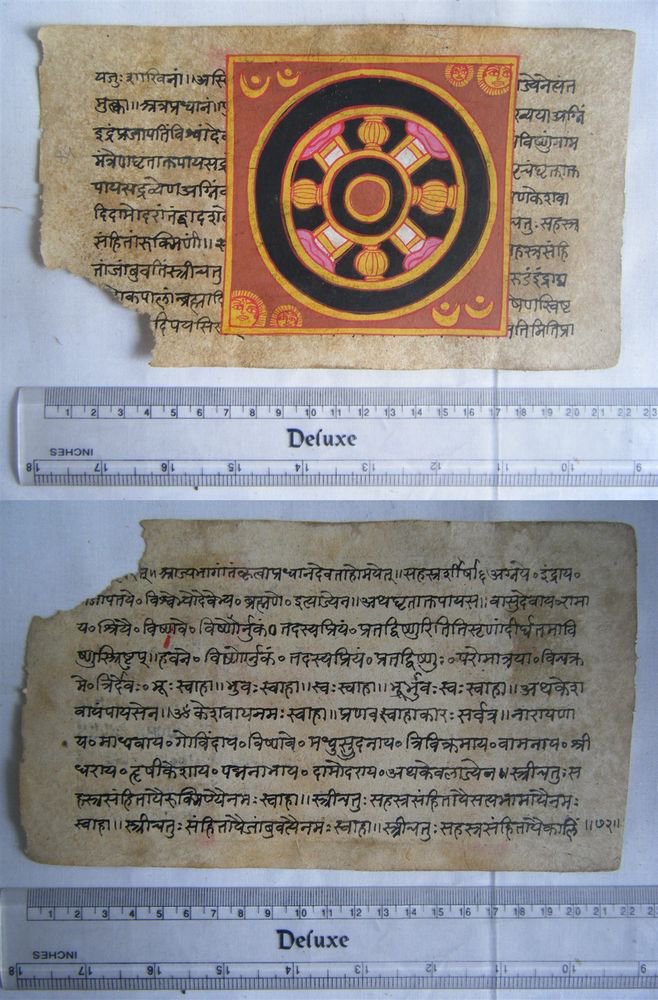 यजुः शाखिनां॥ अग्नि ज्येनेलंत
मुक्का॥ अत्रप्रधानं॥ रन्यया अग्निं
इंद्रंप्रजापतिंविश्वांदे विष्णुंगाम
मंत्रेणघृताक्तपायसद्र घृताक्त
पायसद्रव्येणअग्निं णकेशवा
दिदामोदरांतंद्वादश चतुः सहस्र
संहितांरुक्मिणीं॥ हस्रसंहि
तांजांबुवतिंस्त्रीचतु रुडंइंद्राद्य
कपालान्ब्रह्मादि षेणस्विष्ट
दिपयसि तिमितिप्रा
1 2 3 4 5 6 7 8 9 10 11 12 13 14 15 16 17 18 19 20 21 22 23
Deluxe
INCHES
18 17 16 15 14 13 12 11 10 9
॥ आज्यभागांतंकृत्वाप्रधानदेवताहोमयेत्॥ सहस्रशीर्षा॰ अग्नये॰ इंद्राय॰
प्रजापतये॰ विश्वेभ्योदेवेभ्य॰ ब्रह्मणे॰ इत्याज्येन॥ अथघृताक्तपायस॥ वासुदेवाय॰ रामा
य॰ श्रिये॰ विष्णवे॰ विष्णोर्नुकं॰ तदस्यप्रियं॰ प्रतद्विष्णुरितितिसृणांदीर्घतमावि
ष्णुस्त्रिष्टुप्॥ हवने॰ विष्णोर्नुकं॰ तदस्यप्रियं॰ प्रतद्विष्णुः॰ परोमात्रया॰ विचक्र
मे॰ त्रिर्देवः॰ भूः स्वाहा॥ भुवः स्वाहा॥ स्वः स्वाहा॥ भूर्भुवः स्वः स्वाहा॥ अथकेश
वायपायसेन॥ ॐ केशवायनमः स्वाहा॥ प्रणवस्वाहाकारः सर्वत्र॥ नारायणा
य॰ माधवाय॰ गोविंदाय॰ विष्णवे॰ मधुसुदनाय॰ त्रिविक्रमाय॰ वामनाय॰ श्री
धराय॰ हृषीकेशाय॰ पद्मनाभाय॰ दामोदराय॰ अथकेवलाज्येन॥ स्त्रीचतुः स
हस्रसंहितायैरुक्मिण्यैनमः स्वाहा॥ स्त्रीचतुः सहस्रसंहितायैसत्यभामायैनमः
स्वाहा॥ स्त्रीचतुः संहितायैजांबुवत्यैनमः स्वाहा॥ स्त्रीचतुः सहस्रसंहितायैकालिं ॥७२॥
1 2 3 4 5 6 7 8 9 10 11 12 13 14 15 16 17 18 19 20 21 22 2
Deluxe
INCHES
18 17 16 15 14 13 12 11 10 9